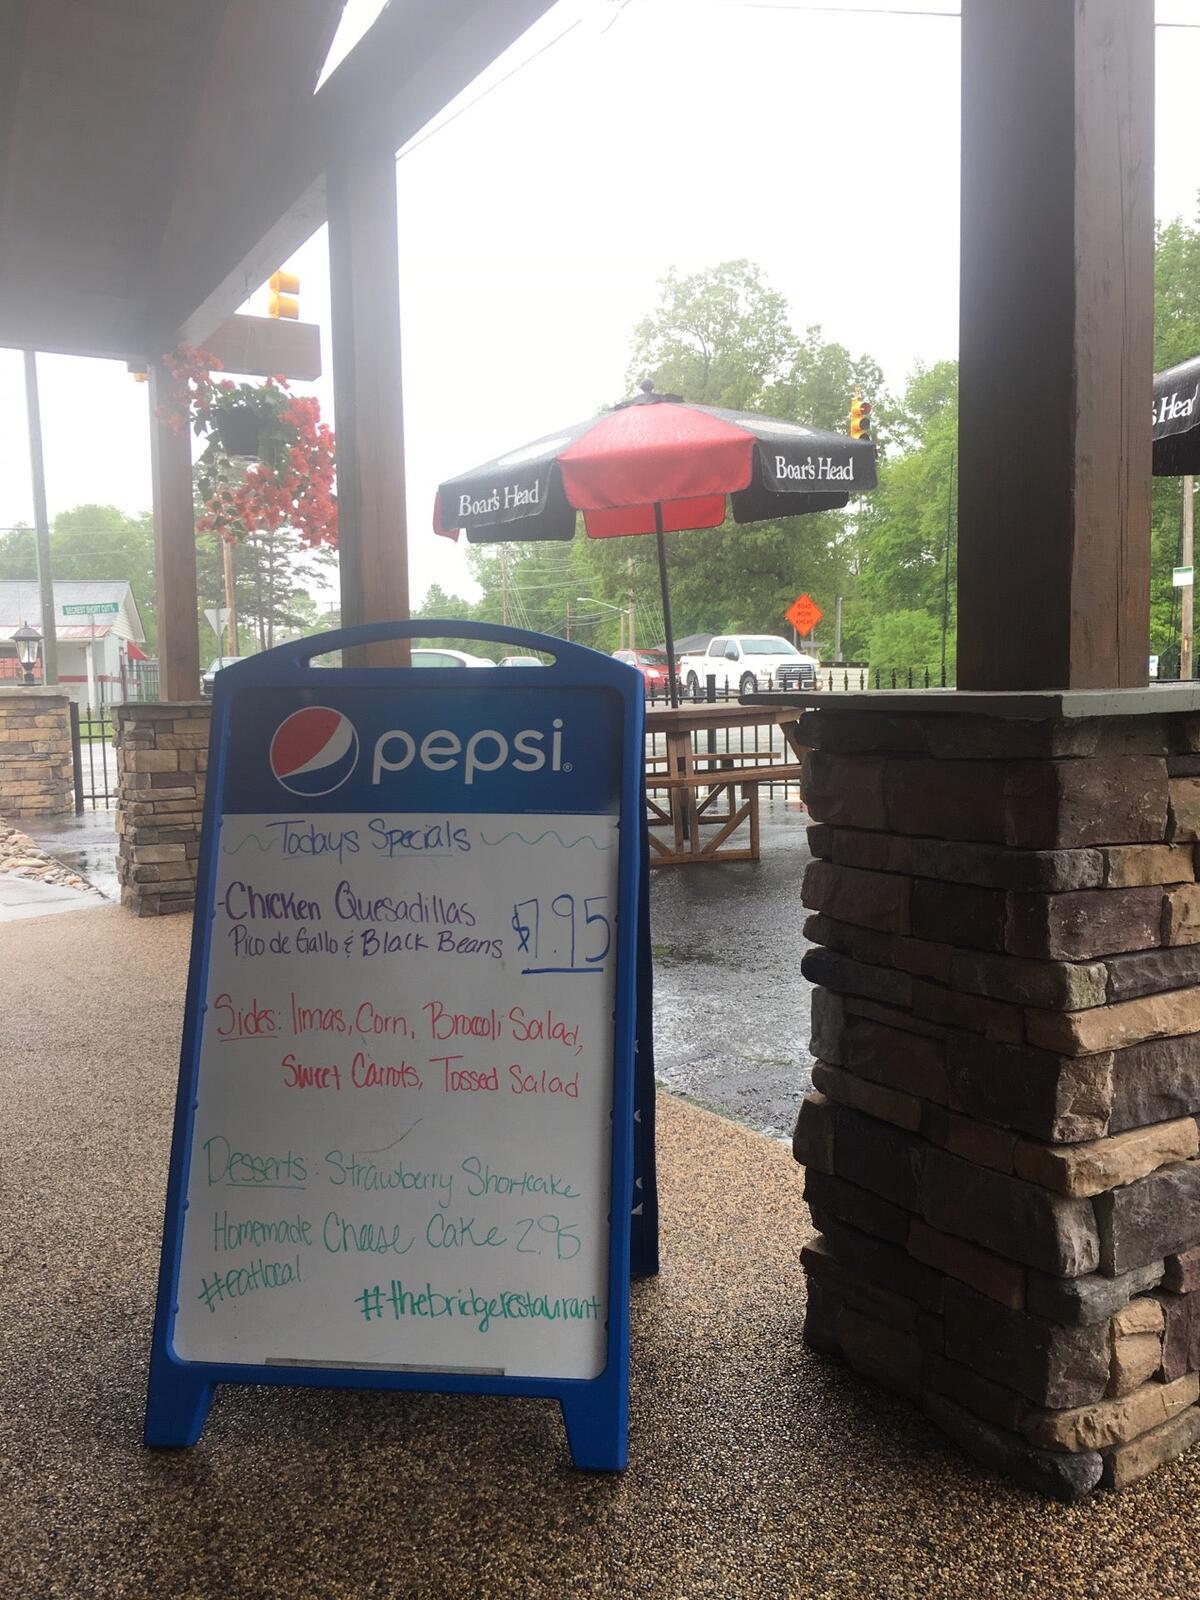 Boar's Head
Boar's Head
s Head
SECREST SHORT CUT
ROAD
WORK
AHEAD
pepsi
Todays Specials
-Chicken Quesadillas
Pico de Gallo & Black Beans $7.95
Sides: limas, Corn, Broccoli Salad,
Sweet Carrots, Tossed Salad
Desserts: Strawberry Shortcake
Homemade Cheese Cake 2.95
#eatlocal
#thebridgerestaurant